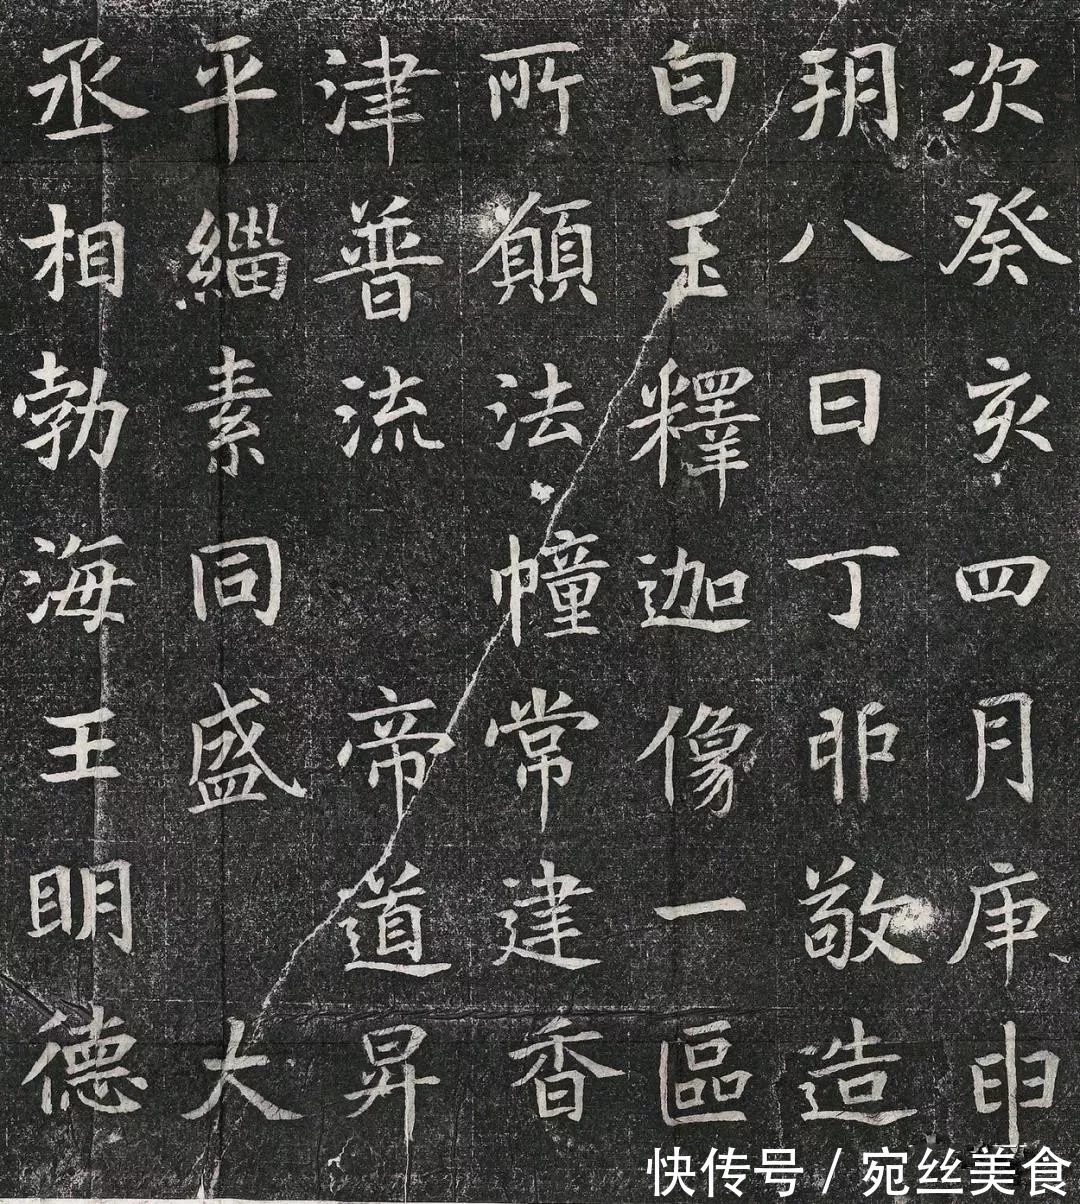 次癸亥四月庚申
玥八日丁卯敬造
白玉釋迦像一區
所願法幢常建香
津普流 帝道昇
平緇素同盛 大
丞相勃海王明德
快传号 / 宛丝美食